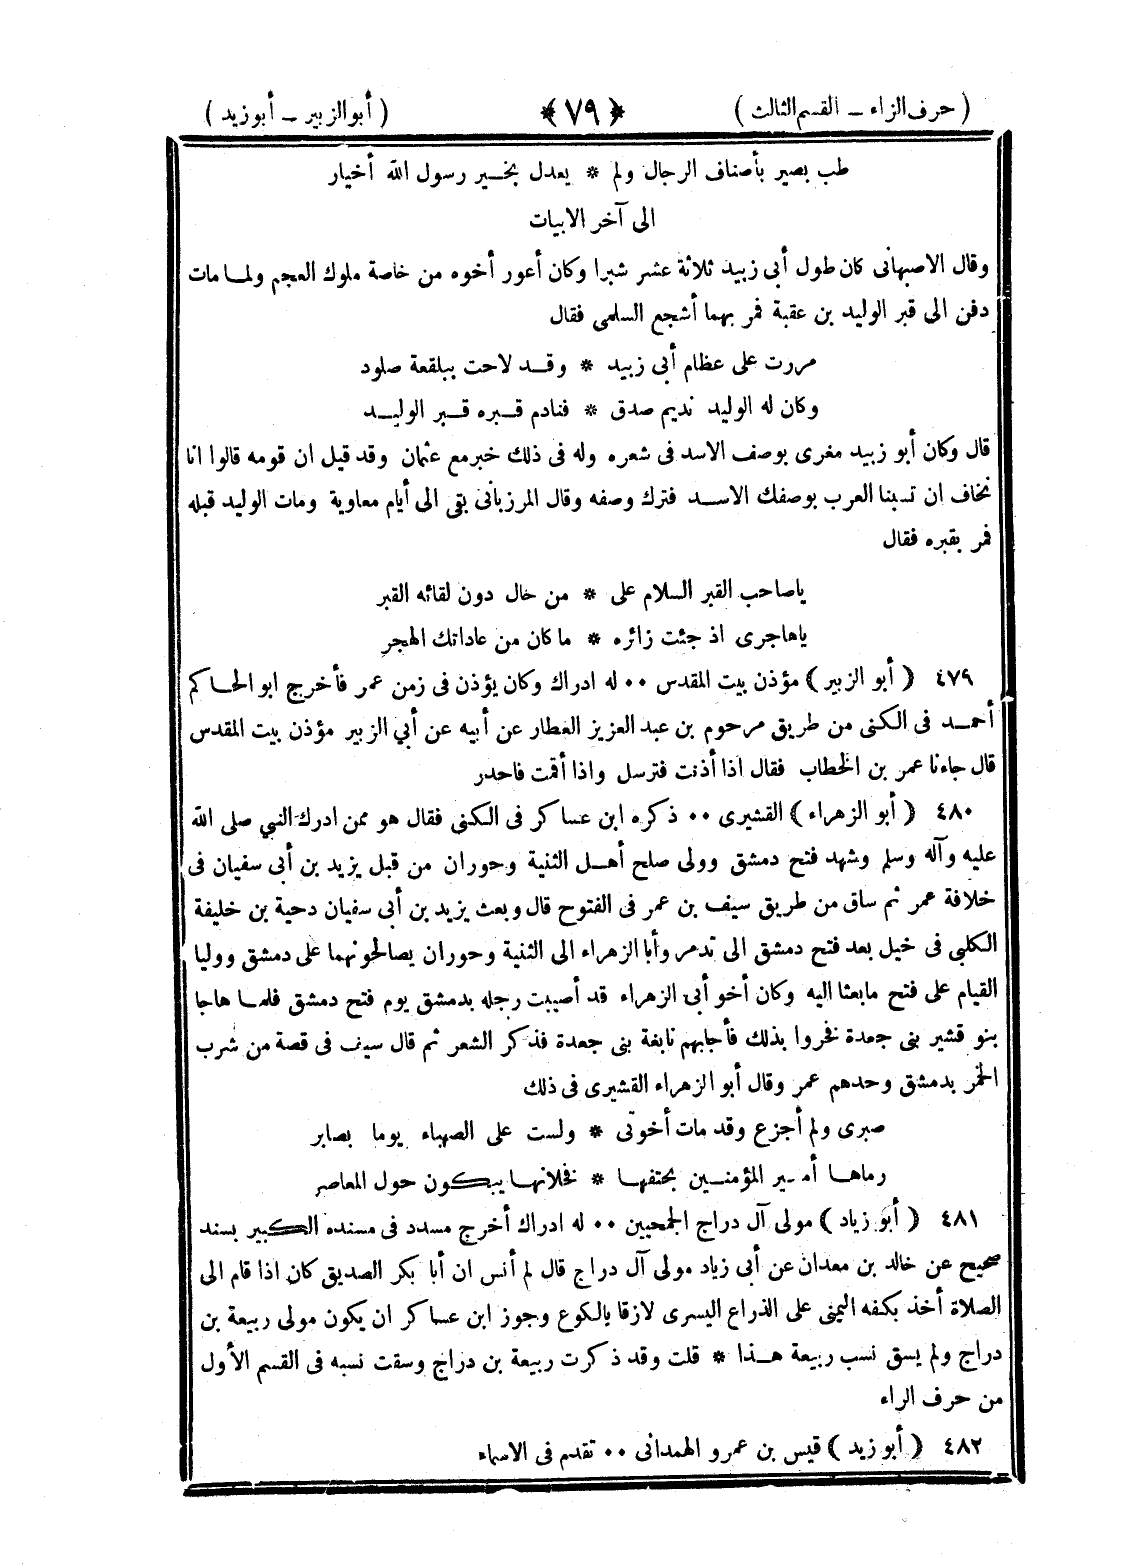 ( حرف الزاء – القسم الثالث ) ﴿ ٧٩ ﴾ ( أبو الزبير – أبو زيد )
طب بصير بأصناف الرجال ولم * يعدل بخير رسول الله أخيار
الى آخر الابيات
وقال الاصبهانى كان طول أبى زبيد ثلاثة عشر شبرا وكان أعور أخوه من خاصة ملوك العجم ولما مات
دفن الى قبر الوليد بن عقبة فمر بهما أشجع السلمى فقال
مررت على عظام أبى زبيد * وقد لاحت ببلقعة صلود
وكان له الوليد نديم صدق * فنادم قبره قبر الوليد
قال وكان أبو زبيد مغرى بوصف الاسد فى شعره وله فى ذلك خبر مع عثمان وقد قيل ان قومه قالوا انا
نخاف ان تسبنا العرب بوصفك الاسد فترك وصفه وقال المرزبانى بقى الى أيام معاوية ومات الوليد قبله
فمر بقبره فقال
ياصاحب القبر السلام على * من حال دون لقائه القبر
ياهاجرى اذ جئت زائره * ما كان من عاداتك الهجر
٤٧٩ ( أبو الزبير ) مؤذن بيت المقدس ٠٠ له ادراك وكان يؤذن فى زمن عمر فأخرج ابو الحاكم
أحمد فى الكنى من طريق مرحوم بن عبد العزيز العطار عن أبيه عن أبي الزبير مؤذن بيت المقدس
قال جاءنا عمر بن الخطاب فقال اذا أذنت فترسل واذا أقمت فاحدر
٤٨٠ ( أبو الزهراء ) القشيرى ٠٠ ذكره ابن عساكر فى الكنى فقال هو ممن ادرك النبي صلى الله
عليه وآله وسلم وشهد فتح دمشق وولى صلح أهل الثنية وحوران من قبل يزيد بن أبى سفيان فى
خلافة عمر ثم ساق من طريق سيف بن عمر فى الفتوح قال وبعث يزيد بن أبى سفيان دحية بن خليفة
الكلبي فى خيل بعد فتح دمشق الى تدمر وأبا الزهراء الى الثنية وحوران يصالحونهما على دمشق ووليا
القيام على فتح مابعثا اليه وكان أخو أبى الزهراء قد أصيبت رجله بدمشق يوم فتح دمشق فلما هاجا
بنو قشير بنى جعدة فخروا بذلك فأجابهم نابغة بنى جعدة فذكر الشعر ثم قال سيف فى قصة من شرب
الخمر بدمشق وحدهم عمر وقال أبو الزهراء القشيرى فى ذلك
صبرى ولم أجزع وقد مات أخوتى * ولست على الصهباء يوما بصابر
رماها أمير المؤمنين بحتفها * فخلانها يبكون حول المعاصر
٤٨١ ( أبو زياد ) مولى آل دراج الجمحيين ٠٠ له ادراك أخرج مسدد فى مسنده الكبير بسند
صحيح عن خالد بن معدان عن أبى زياد مولى آل دراج قال لم أنس ان أبا بكر الصديق كان اذا قام الى
الصلاة أخذ بكفه اليمنى على الذراع اليسرى لازقا بالكوع وجوز ابن عساكر ان يكون مولى ربيعة بن
دراج ولم يسق نسب ربيعة هذا * قلت وقد ذكرت ربيعة بن دراج وسقت نسبه فى القسم الأول
من حرف الراء
٤٨٢ ( أبو زيد ) قيس بن عمرو الهمدانى ٠٠ تقدم فى الاسماء